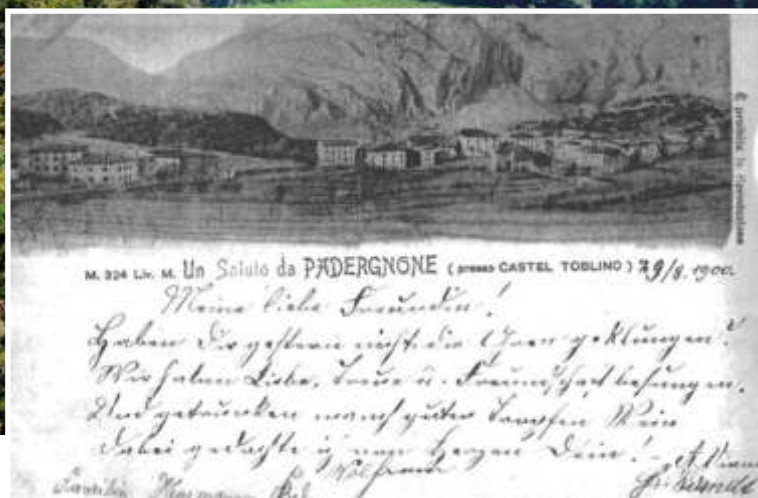 È proibita la riproduzione
M. 324 Liv. M. Un Saluto da PADERGNONE (presso CASTEL TOBLINO) 29/8. 1900.
Meine liebe Freundin!
Haben Dir gestern nicht die Ohren geklungen?
Wir haben Liebe, Treue u. Freundschaft besungen.
Und getrunken manch guten Tropfen Wein
Dabei gedachte von Herzen Dein!
Wolfram
Familie